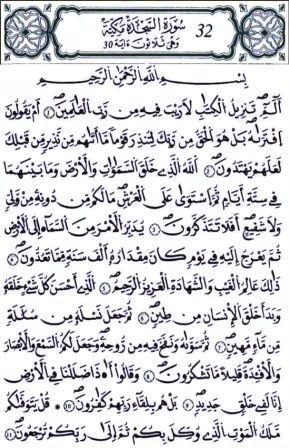 32 سُورَةُ السَّجْدَةِ مَكِّيَّة
وَهْيَ ثَلَاثُونَ ءَايَة 30
بِسْمِ اللَّهِ الرَّحْمَٰنِ الرَّحِيمِ
أَلَٓمِّٓ تَنزِيلُ الْكِتَٰبِ لَا رَيْبَ فِيهِ مِن رَّبِّ الْعَٰلَمِينَ أَمْ يَقُولُونَ
افْتَرَىٰهُ بَلْ هُوَ الْحَقُّ مِن رَّبِّكَ لِتُنذِرَ قَوْمًا مَّا أَتَىٰهُم مِّن نَّذِيرٍ مِّن قَبْلِكَ
لَعَلَّهُمْ يَهْتَدُونَ اللَّهُ الَّذِي خَلَقَ السَّمَٰوَٰتِ وَالْأَرْضَ وَمَا بَيْنَهُمَا
فِي سِتَّةِ أَيَّامٍ ثُمَّ اسْتَوَىٰ عَلَى الْعَرْشِ مَا لَكُم مِّن دُونِهِ مِنْ وَلِيٍّ
وَلَا شَفِيعٍ أَفَلَا تَتَذَكَّرُونَ يُدَبِّرُ الْأَمْرَ مِنَ السَّمَاءِ إِلَى الْأَرْضِ
ثُمَّ يَعْرُجُ إِلَيْهِ فِي يَوْمٍ كَانَ مِقْدَارُهُ أَلْفَ سَنَةٍ مِّمَّا تَعُدُّونَ
ذَٰلِكَ عَٰلِمُ الْغَيْبِ وَالشَّهَٰدَةِ الْعَزِيزُ الرَّحِيمُ الَّذِي أَحْسَنَ كُلَّ شَيْءٍ خَلَقَهُ
وَبَدَأَ خَلْقَ الْإِنسَٰنِ مِن طِينٍ ثُمَّ جَعَلَ نَسْلَهُ مِن سُلَٰلَةٍ
مِّن مَّاءٍ مَّهِينٍ ثُمَّ سَوَّىٰهُ وَنَفَخَ فِيهِ مِن رُّوحِهِ وَجَعَلَ لَكُمُ السَّمْعَ وَالْأَبْصَٰرَ
وَالْأَفْـِٔدَةَ قَلِيلًا مَّا تَشْكُرُونَ وَقَالُوا أَ.ذَا ضَلَلْنَا فِي الْأَرْضِ
إِنَّا لَفِي خَلْقٍ جَدِيدٍ بَلْ هُم بِلِقَاءِ رَبِّهِمْ كَٰفِرُونَ قُلْ يَتَوَفَّىٰكُم
مَّلَكُ الْمَوْتِ الَّذِي وُكِّلَ بِكُمْ ثُمَّ إِلَىٰ رَبِّكُمْ تُرْجَعُونَ